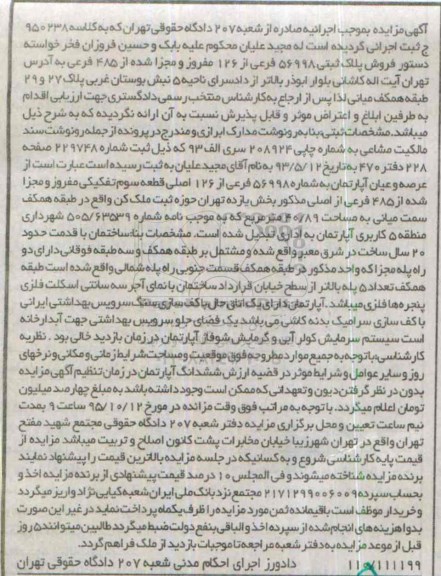 آگهی مزایده بموجب اجرائیه صادره از شعبه ۲۰۷ دادگاه حقوقی تهران که به کلاسه ۹۵۰۲۳۸
ج ثبت اجرائی گردیده است له مجید علیان محکوم علیه بابک و حسین فروزان فخر خواسته
دستور فروش پلاک ثبتی ۵۶۹۹۸ فرعی از ۱۲۶ مفروز و مجزا شده از ۴۸۵ فرعی به آدرس
تهران آیت اله کاشانی بلوار ابوذر بالاتر از دادسرای ناحیه ۵ نبش بوستان غربی پلاک ۲۷ و ۲۹
طبقه همکف میانی لذا پس از ارجاع به کارشناس منتخب رسمی دادگستری جهت ارزیابی اقدام
به طرفین ابلاغ و اعتراض موثر و قابل پذیرش نسبت به آن ارائه نگردیده که به شرح ذیل
میباشد. مشخصات ثبتی بنابه رونوشت مدارک ابرازی و مندرج در پرونده از جمله رونوشت سند
مالکیت مشاعی به شماره چاپی ۲۰۸۹۲۴ سری الف ۹۳ که ذیل ثبت شماره ۲۲۹۷۴۸ صفحه
۲۲۸ دفتر ۴۷۰ به تاریخ ۹۳/۵/۱۲ به نام آقای مجید علیان به ثبت رسیده است عبارت است از
عرصه و عیان آپارتمان به شماره ۵۶۹۹۸ فرعی از ۱۲۶ اصلی قطعه سوم تفکیکی مفروز و مجزا
شده از ۴۸۵ فرعی از اصلی مذکور بخش یازده تهران حوزه ثبت ملک کن واقع در طبقه همکف
سمت میانی به مساحت ۴۰/۸۹ مترمربع که به موجب نامه شماره ۵۰۵/۶۳۵۳۹ شهرداری
منطقه ۵ کاربری آپارتمان به اداری تبدیل شده است. مشخصات بنا ساختمان با قدمت حدود
۲۰ سال ساخت در شرق معبر واقع شده و مشتمل بر طبقه همکف و سه طبقه فوقانی دارای دو
راه پله مجزا که واحد مذکور در طبقه همکف قسمت جنوبی راه پله شمالی واقع شده است طبقه
همکف تعداد ۵ پله بالاتر از سطح خیابان قرار داد ساختمان با نمای آجر سه سانتی اسکلت فلزی
پنجره ها فلزی میباشد. آپارتمان دارای یک اتاق حال با کف سازی سنگ سرویس بهداشتی ایرانی
با کف سازی سرامیک بدنه کاشی می باشد یک فضای جلو سرویس بهداشتی جهت آبدارخانه
است سیستم سرمایش کولر آبی و گرمایش شوفاژ آپارتمان در زمان بازدید خالی بود. نظریه
کارشناسی باتوجه به جمیع موارد مطروحه فوق موقعیت و مساحت شرایط زمانی و مکانی و نرخهای
روز و سایر عوامل و شرایط موثر در قضیه ارزش ششدانگ آپارتمان در زمان تنظیم آگهی مزایده
بدون در نظر گرفتن دیون و تعهداتی که ممکن است وجود داشته باشد به مبلغ چهارصد میلیون
تومان اعلام میگردد. با توجه به مراتب فوق وقت مزایده در مورخ ۹۵/۱۰/۱۲ ساعت ۹ بمدت
نیم ساعت تعیین و محل برگزاری مزایده دفتر شعبه ۲۰۷ دادگاه حقوقی مجتمع شهید مفتح
تهران واقع در تهران شهرزیبا خیابان مخابرات پشت کانون اصلاح و تربیت میباشد مزایده از
قیمت پایه کارشناسی شروع و به کسانیکه در جلسه مزایده بالاترین قیمت را پیشنهاد نمایند
برنده مزایده شناخته میشوند و فی المجلس ۱۰ درصد قیمت پیشنهادی از برنده مزایده اخذ و
بحساب سپرده ۲۱۷۱۲۹۹۰۰۶۰۰۹ مجتمع نزد بانک ملی ایران شعبه کیایی نژاد واریز میگردد
و خریدار موظف است باقیمانده ثمن مورد مزایده را ظرف یکماه پرداخت نماید در غیر این صورت
بدوا هزینه های انجام شده از سپرده اخذ و الباقی بنفع دولت ضبط میگردد طالبین میتوانند ۵ روز
قبل از موعد مزایده به دفتر شعبه مراجعه تا موجبات بازدید از ملک فراهم گردد.
۱۱۰/۱۱۱۱۹۹ دادورز اجرای احکام مدنی شعبه ۲۰۷ دادگاه حقوقی تهران